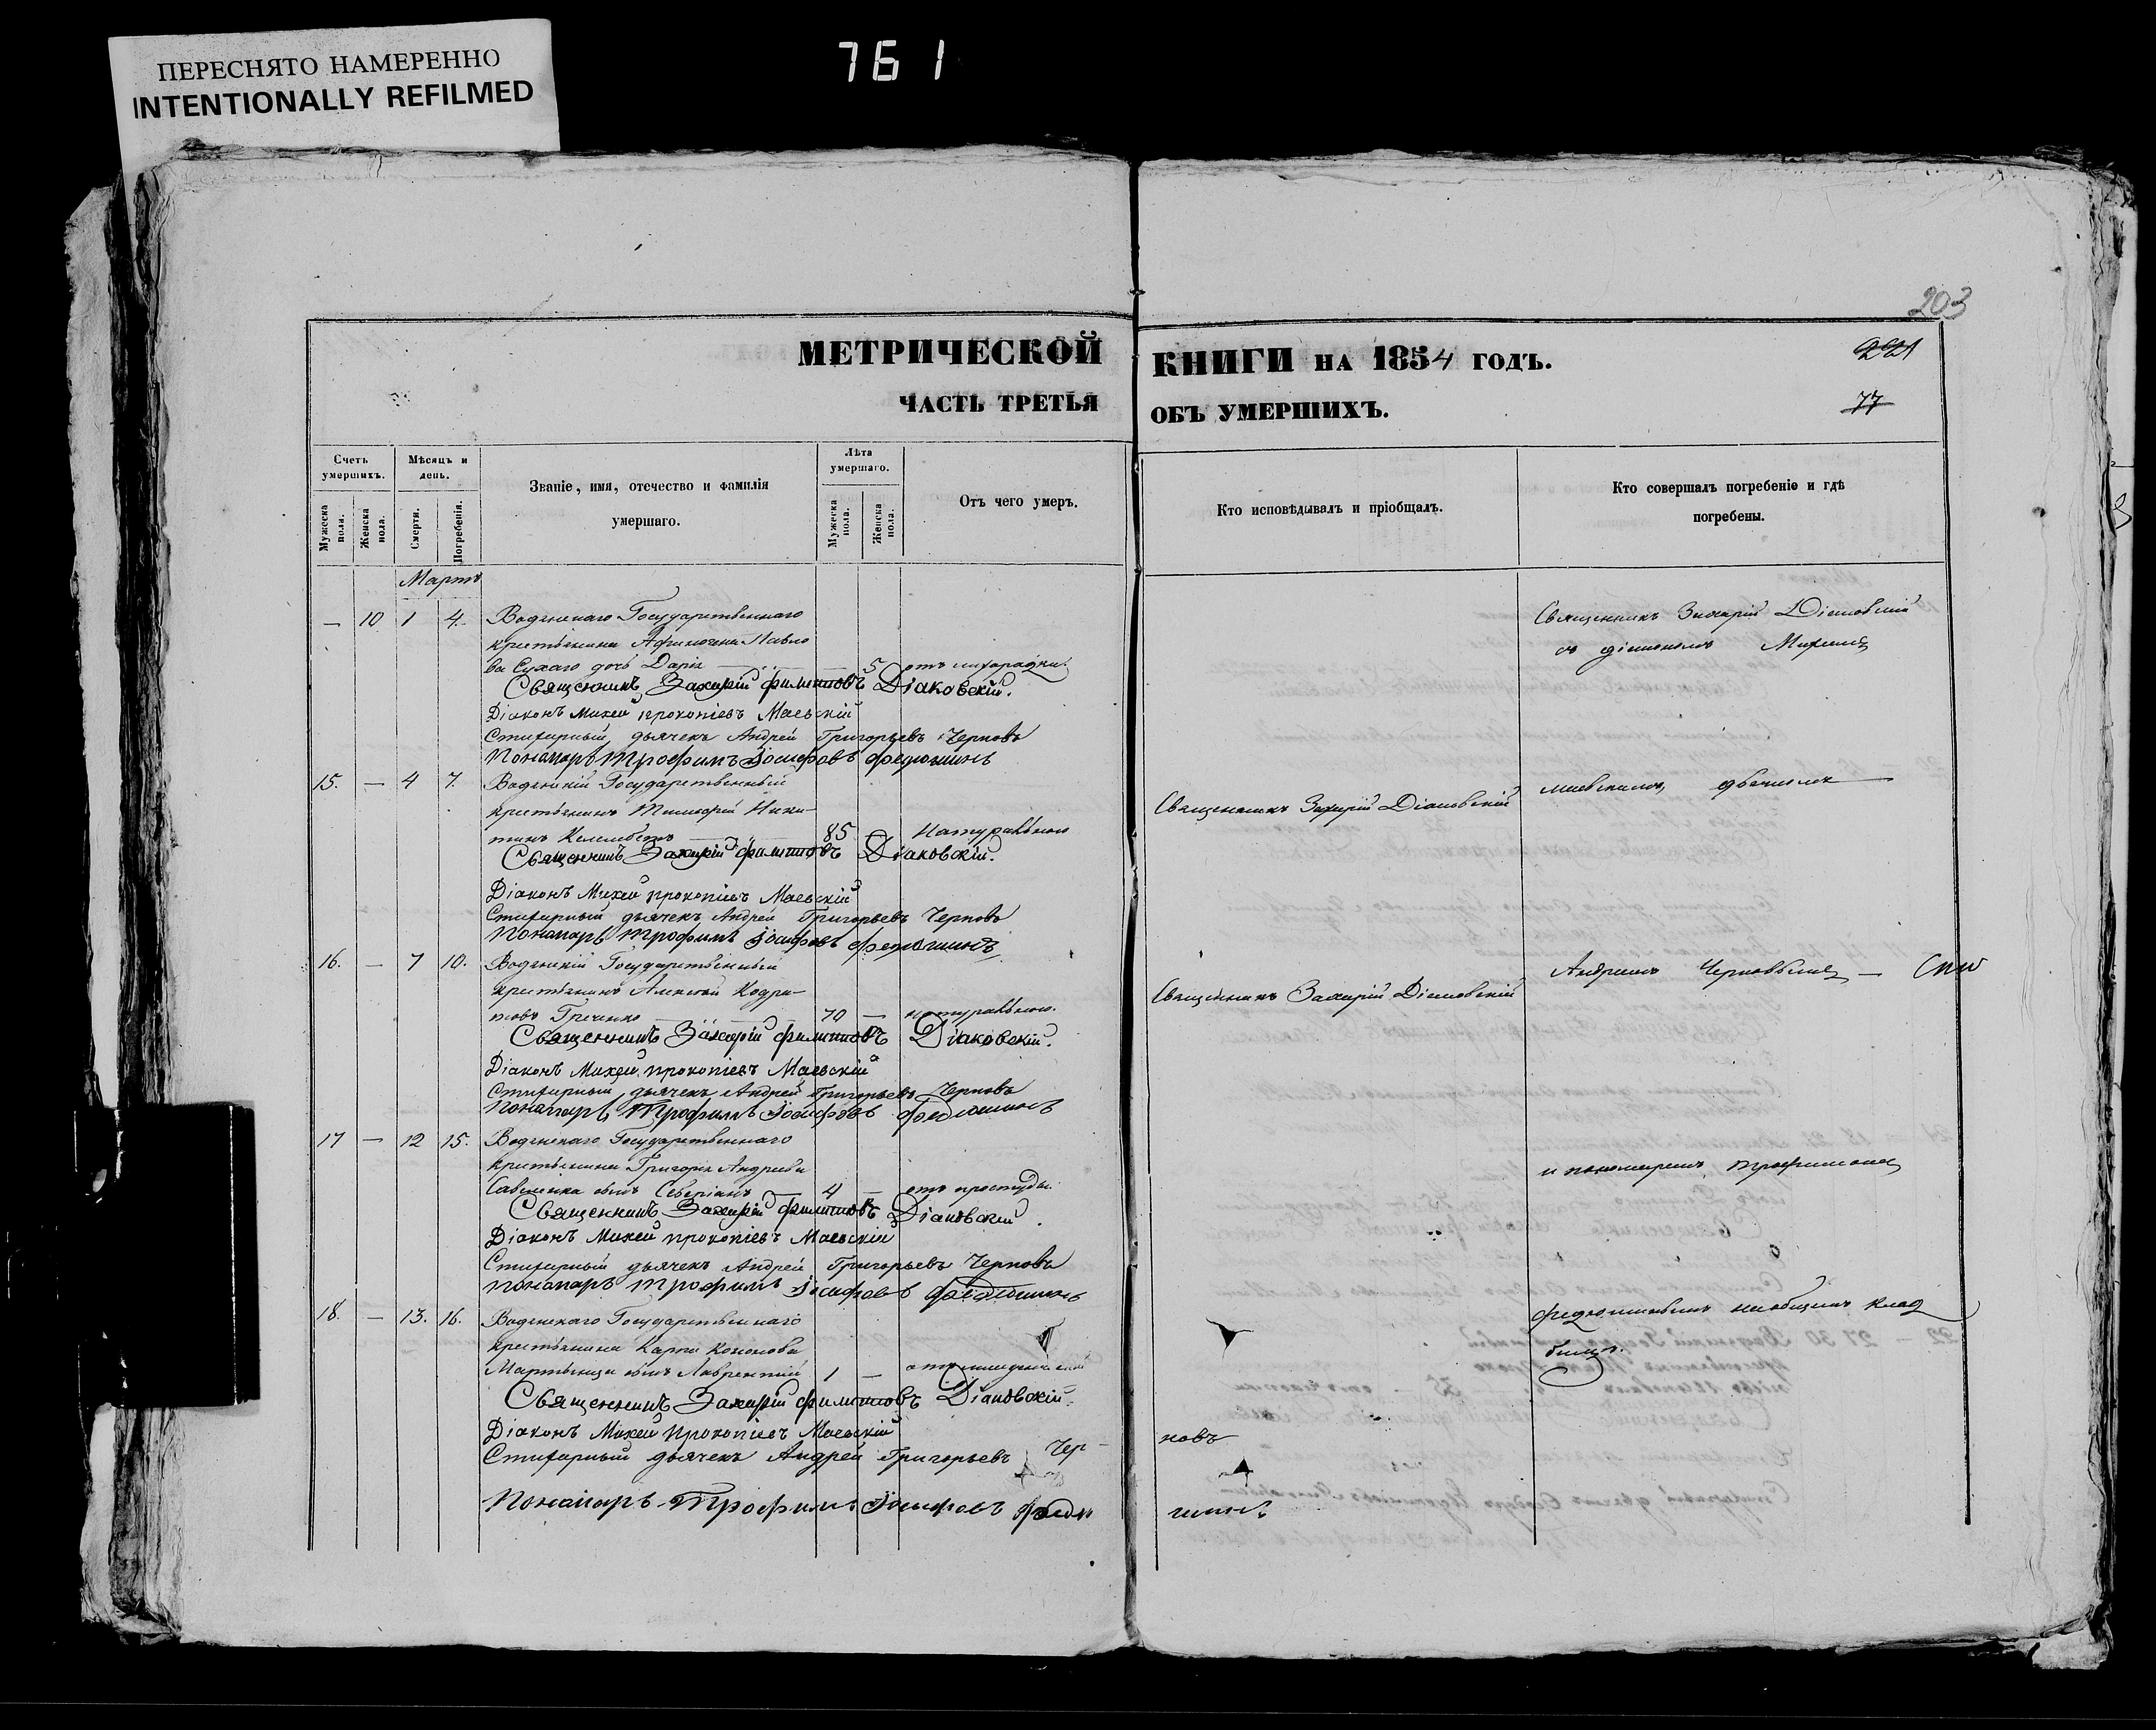 ПЕРЕСНЯТО НАМЕРЕННО
INTENTIONALLY REFILMED
761
203
МЕТРИЧЕСКОЙ КНИГИ НА 1854 ГОДЪ.
221
ЧАСТЬ ТРЕТЬЯ ОБЪ УМЕРШИХЪ.
77
Счетъ умершихъ.
Мужеска пола.
Женска пола.
Мѣсяцъ и день.
Смерти.
Погребенія.
Званіе, имя, отечество и фамилія умершаго.
Лѣта умершаго.
Мужеска пола.
Женска пола.
Отъ чего умеръ.
Кто исповѣдывалъ и пріобщалъ.
Кто совершалъ погребеніе и гдѣ погребены.
Мартъ
— 10 1 4. Водянскаго Государственнаго
крестьянина Павло
ва Сухаго дочь Дарія — 5 отъ лихорадки.
Священникъ Захарій Филиповъ Діаковскій.
Діаконъ Михей Прокопіевъ Маевскій
Стихарный дьячекъ Андрей Григорьевъ Черновъ
Понамарь Трофимъ Іосифовъ Федюшинъ
Священникъ Захарій Діаковскій
съ діакономъ Михеемъ
15. — 4 7. Водянскій Государственный
крестьянинъ Тимофей Ники-
тинъ 85 — Натурально
Священникъ Захарій Филиповъ Діаковскій.
Діаконъ Михей Прокопіевъ Маевскій
Стихарный дьячекъ Андрей Григорьевъ Черновъ
Понамарь Трофимъ Іосифовъ Федюшинъ
Священникъ Захарій Діаковскій
Маевскимъ, дьячкомъ —
16. — 7 10. Водянскій Государственный
крестьянинъ Алексѣй
70 — натурально.
Священникъ Захарій Филиповъ Діаковскій.
Діаконъ Михей Прокопіевъ Маевскій
Стихарный дьячекъ Андрей Григорьевъ Черновъ
Понамарь Трофимъ Іосифовъ Федюшинъ
Священникъ Захарій Діаковскій
Андреемъ Черновымъ —
17 — 12 15. Водянскаго Государственнаго
крестьянина Григорія Андреева
Савченка сынъ Северіанъ — 4 — отъ простуды.
Священникъ Захарій Филиповъ Діаковскій.
Діаконъ Михей Прокопіевъ Маевскій
Стихарный дьячекъ Андрей Григорьевъ Черновъ
Понамарь Трофимъ Іосифовъ Федюшинъ
и пономаремъ Трофимомъ
18. — 13. 16. Водянскаго Государственнаго
крестьянина Карпа Кононова
сынъ Лаврентій 1 —
Священникъ Захарій Филиповъ Діаковскій.
Діаконъ Михей Прокопіевъ Маевскій
Стихарный дьячекъ Андрей Григорьевъ Чер-
новъ
Понамарь Трофимъ Іосифовъ Федю
шинъ
Федюшинымъ на общемъ клад
бищѣ.